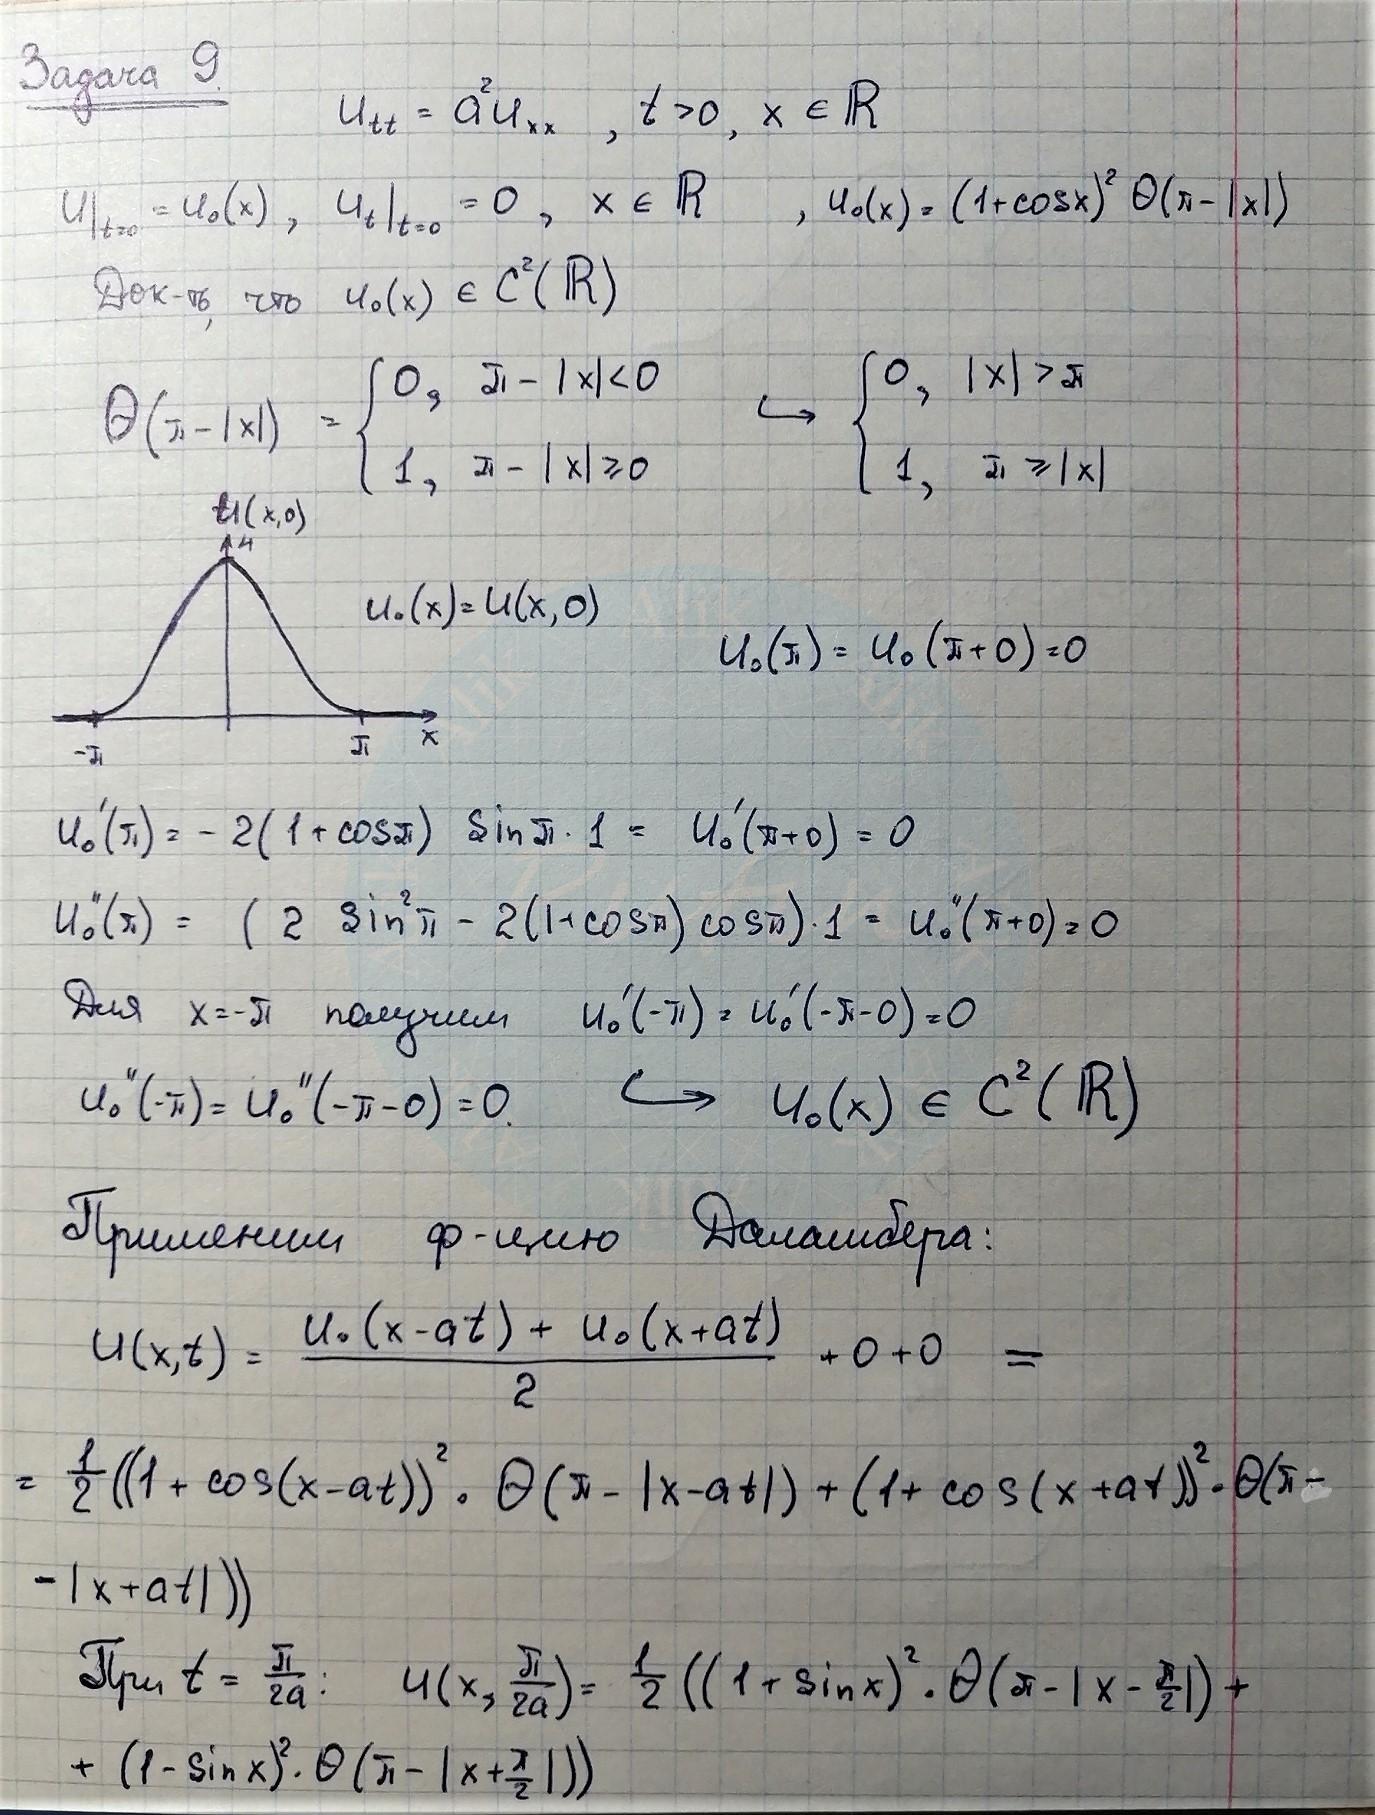 Задача 9.
u_tt = a²u_xx , t>0, x ∈ ℝ
u|t=0 = u₀(x), u_t|t=0 = 0, x ∈ ℝ , u₀(x) = (1+cosx)² θ(π-|x|)
Док-ть, что u₀(x) ∈ C²(ℝ)
θ(π-|x|) = { 0, π-|x|<0 ↪ { 0, |x|>π
1, π-|x|≥0 1, π≥|x|
u(x,0)
4
u₀(x) = u(x,0)
u₀(π) = u₀(π+0)=0
-π π x
u₀'(π) = -2(1+cosπ) sinπ·1 = u₀'(π+0) = 0
u₀''(π) = (2 sin²π - 2(1+cosπ)cosπ)·1 = u₀''(π+0)=0
Для x=-π получим u₀'(-π) = u₀'(-π-0)=0
u₀''(-π) = u₀''(-π-0)=0. ↪ u₀(x) ∈ C²(ℝ)
Применим ф-цию Даламбера:
u(x,t) = (u₀(x-at) + u₀(x+at))/2 + 0 + 0 =
= 1/2((1+cos(x-at))²·θ(π-|x-at|)+(1+cos(x+at))²·θ(π-
-|x+at|))
При t = π/2a: u(x, π/2a) = 1/2((1+sinx)²·θ(π-|x-π/2|)+
+(1-sinx)²·θ(π-|x+π/2|))